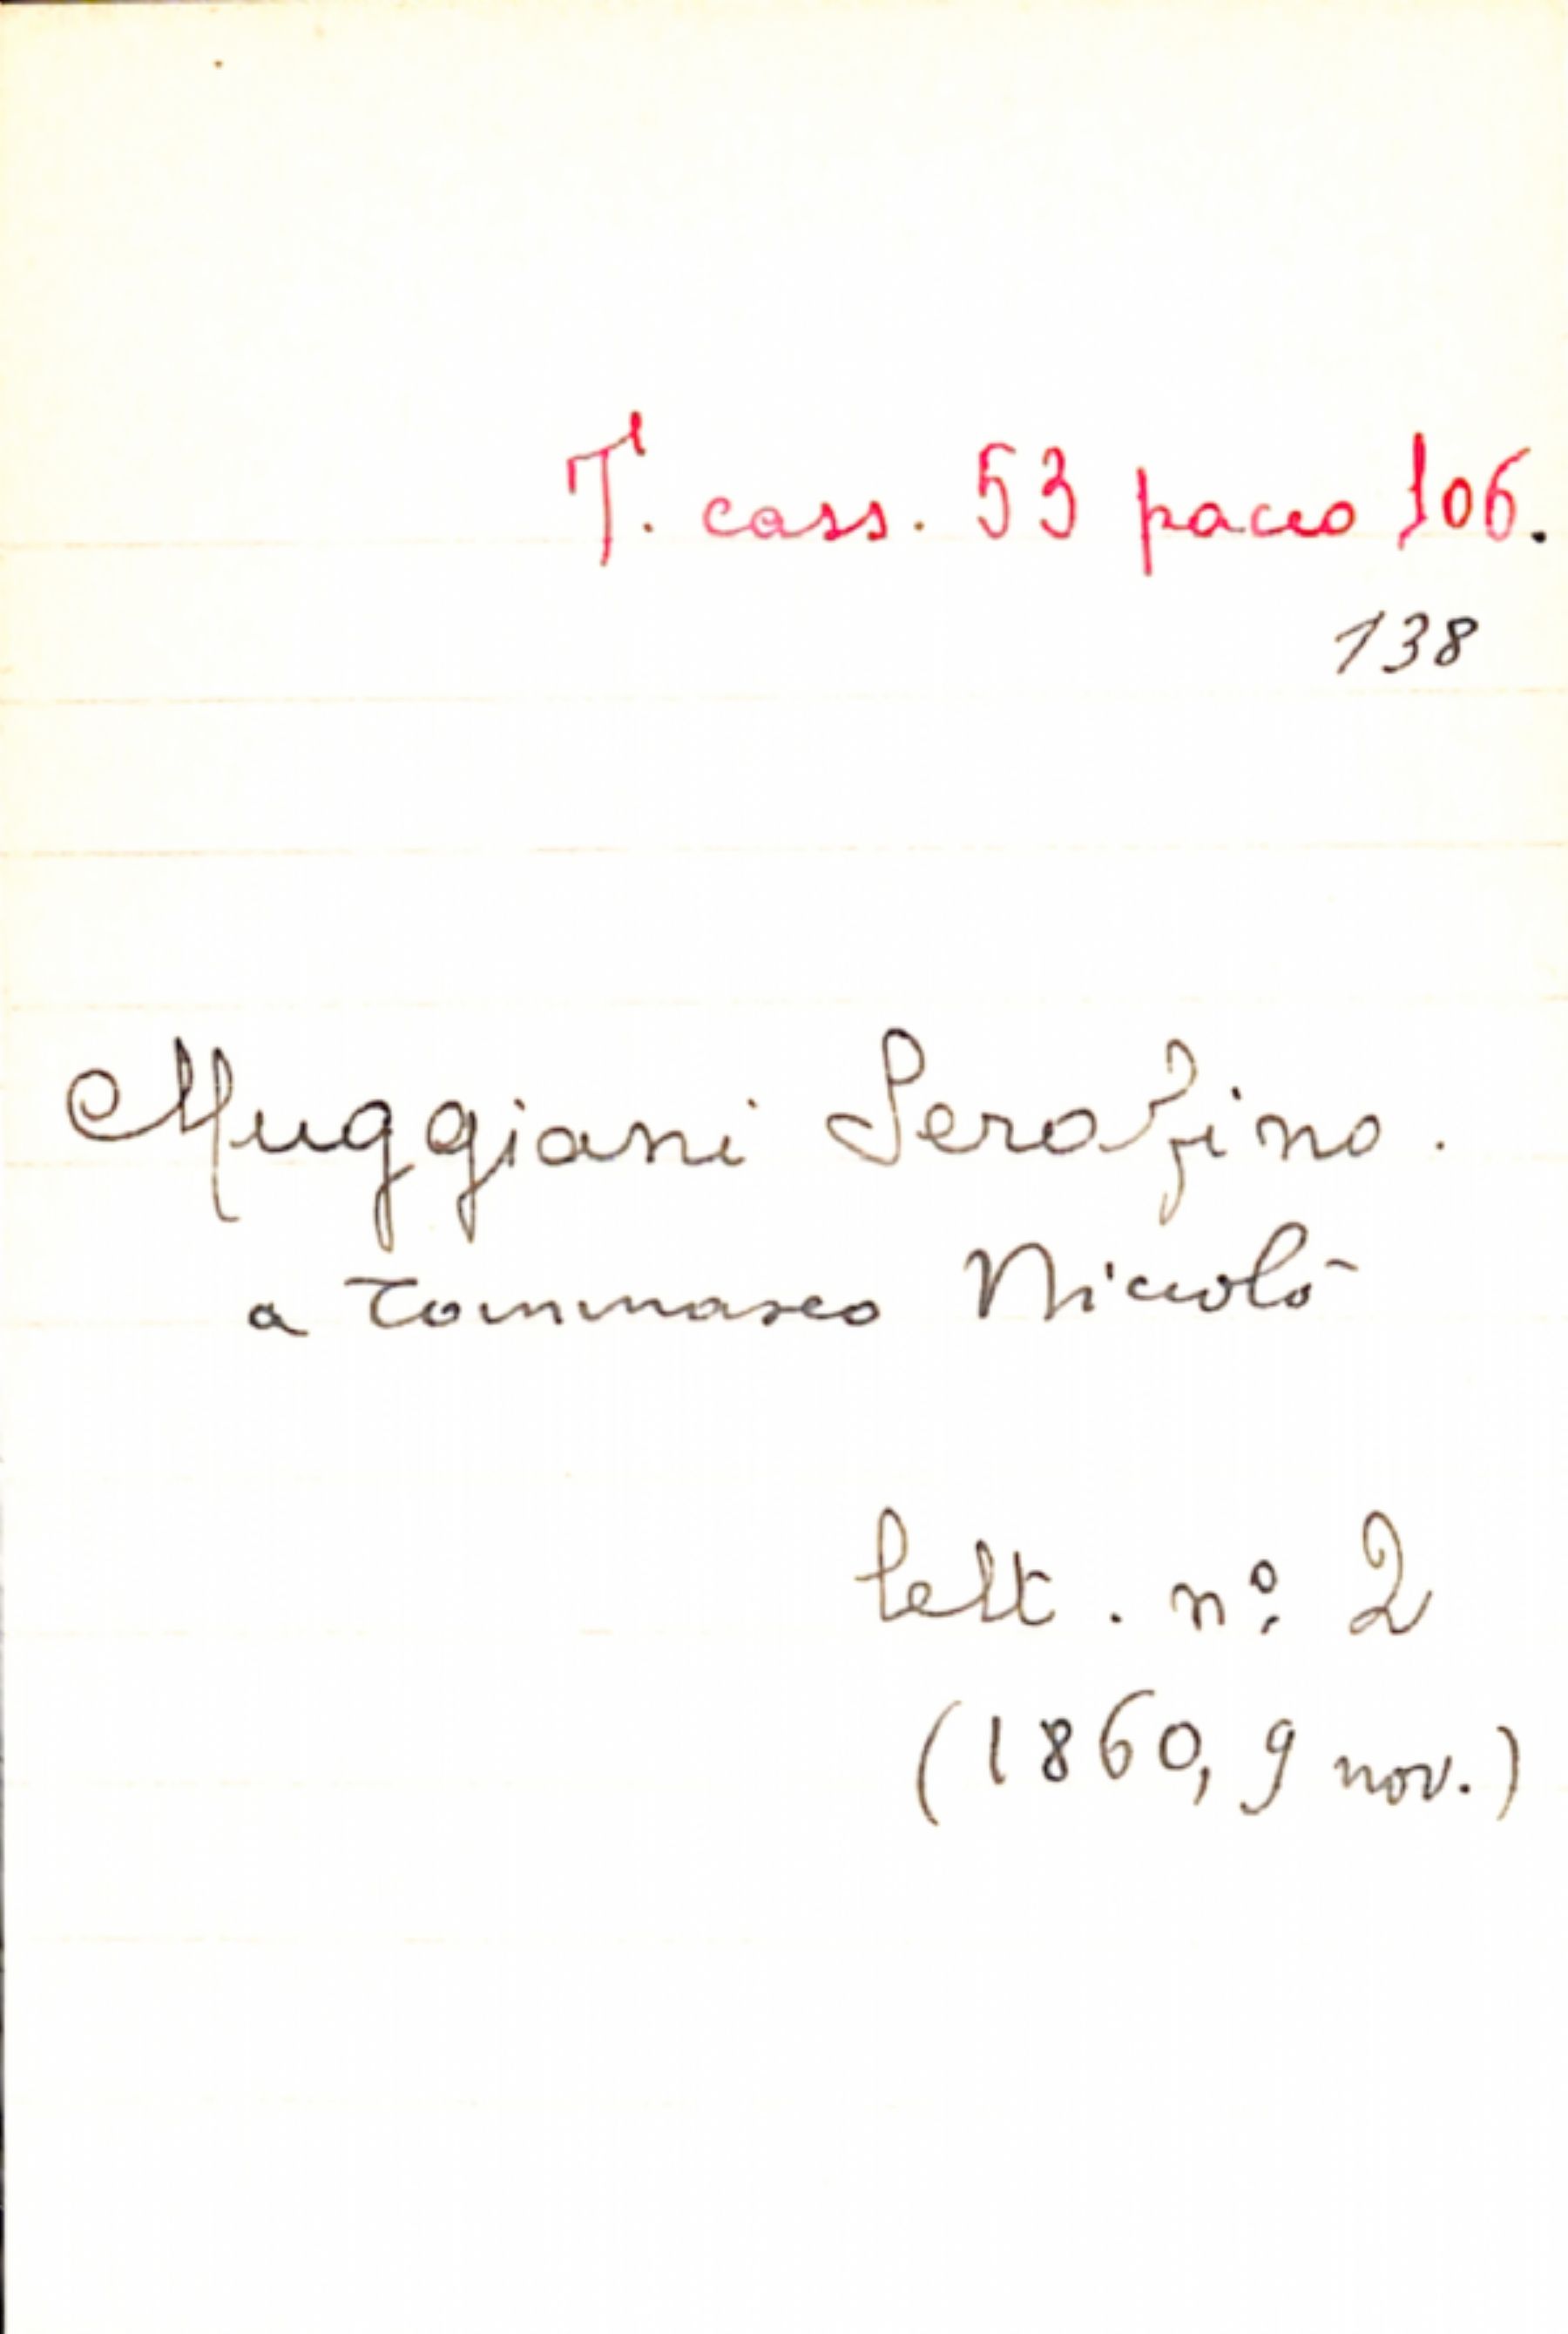 T. cass. 53 pacco 106.
138
Muggiani Serafino.
a Tommaseo Niccolò
lett. nº 2
(1860, 9 nov.)